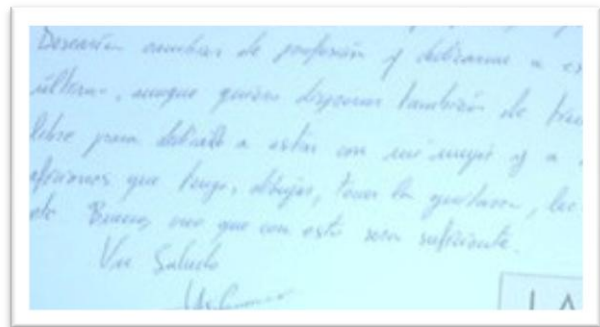 Desearía cambiar de profesión y dedicarme a es
último, aunque quiero disponer también de tiem
libre para dedicarlo a estar con mi mujer y a
aficiones que tengo, dibujar, tocar la guitarra, lee
etc Bueno, creo que con esto sera suficiente.
Un Saludo
LA